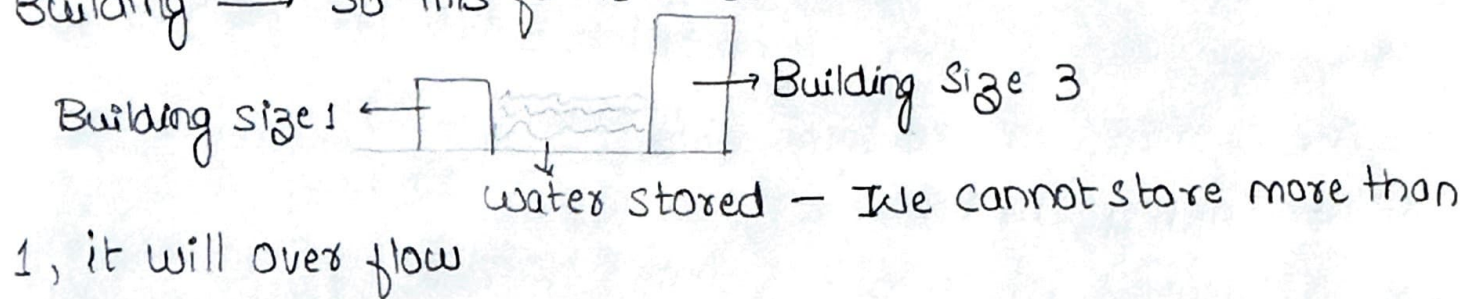 Building → so this
Building size 1
Building Size 3
water stored - We cannot store more than
1, it will over flow